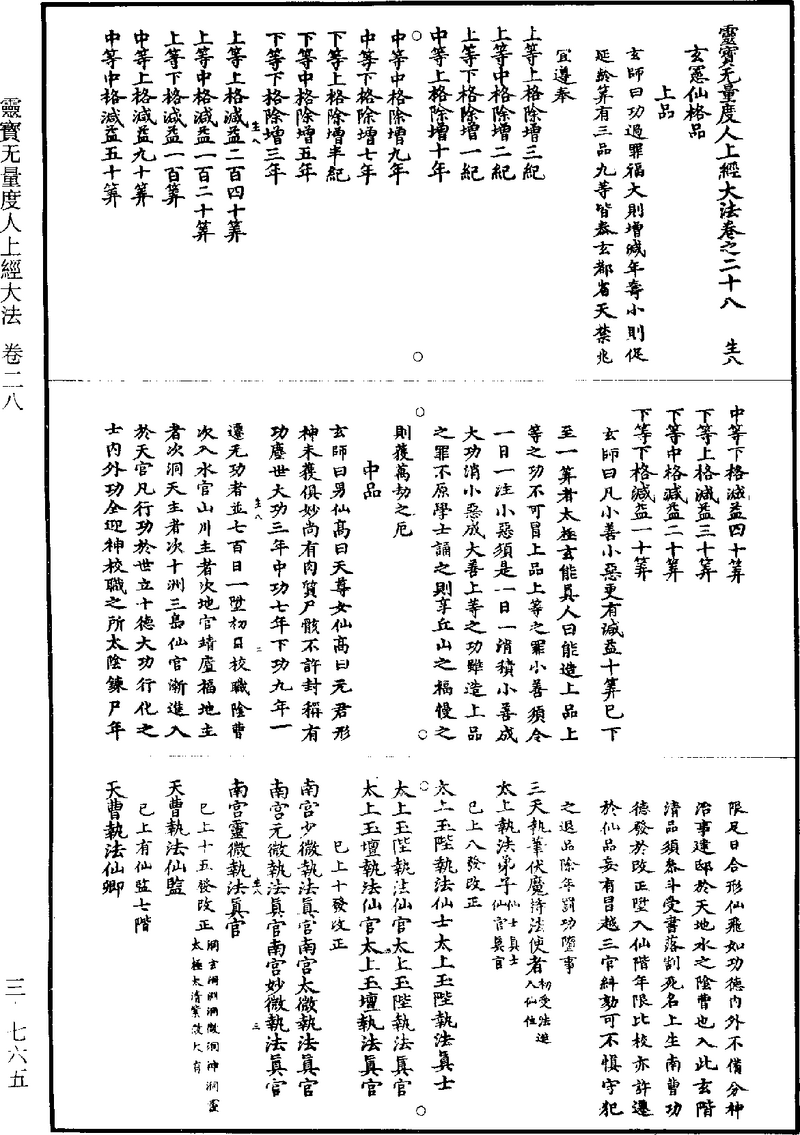 靈寶无量度人上經大法卷之二十八　生八
玄憲仙格品
上品
玄師曰功過罪福大則增減年壽小則促
延齡筭有三品九等皆忝玄都省天禁兆
宜遵奉
上等上格除增三紀
上等中格除增二紀
上等下格除增一紀
中等上格除增十年
中等中格除增九年
中等下格除增七年
下等上格除增半紀
下等中格除增五年
下等下格除增三年
上等上格減益二百四十筭
上等中格減益一百二十筭
上等下格減益一百筭
中等上格減益九十筭
中等中格減益五十筭
中等下格減益四十筭
下等上格減益三十筭
下等中格減益二十筭
下等下格減益一十筭
玄師曰凡小善小惡更有減益十筭已下
至一筭者太極玄能眞人曰能造上品上
等之功不可冒上品上等之罪小善須令
一日一注小惡須是一日一消積小善成
大功消小惡成大善上等之功雖造上品
之罪不原學士誦之則享丘山之福慢之
則獲萬劫之厄
中品
玄師曰男仙高曰天尊女仙高曰元君形
神未獲俱妙尚有肉質尸骸不許封稱有
功塵世大功三年中功七年下功九年一
遷无功者並七百日一墜初日校職陰曹
次入水官山川主者次地官靖廬福地主
者次洞天主者次十洲三島仙官漸進入
於天官凡行功於世立十德大功行化之
士內外功全迎神校職之所太陰鍊尸年
限足日合形仙飛如功德內外不備分神
治事建邸於天地水之陰曹也入此玄階
清品須忝斗受書落割死名上生南曹功
德發於改正墜入仙階年限比校亦許遷
於仙品妄有冒越三官糾劾可不愼守犯
之退品除年罰功墮事
三天執筆伏魔持法使者初受法進入仙位
太上執法弟子仙士眞士仙官眞官
已上八發改正
太上玉陛執法仙士太上玉陛執法眞士
太上玉陛執法仙官太上玉陛執法眞官
太上玉壇執法仙官太上玉壇執法眞官
已上十發改正
南宮少微執法眞官南宮太微執法眞官
南宮元微執法眞官南宮妙微執法眞官
南宮靈微執法眞官
已上十五發改正洞玄洞淵洞微洞神洞靈太極太清紫微大有
天曹執法仙監
已上有仙監七階
天曹執法仙卿
生八　二
生八　三
靈寶无量度人上經大法　卷二八
三·七六五